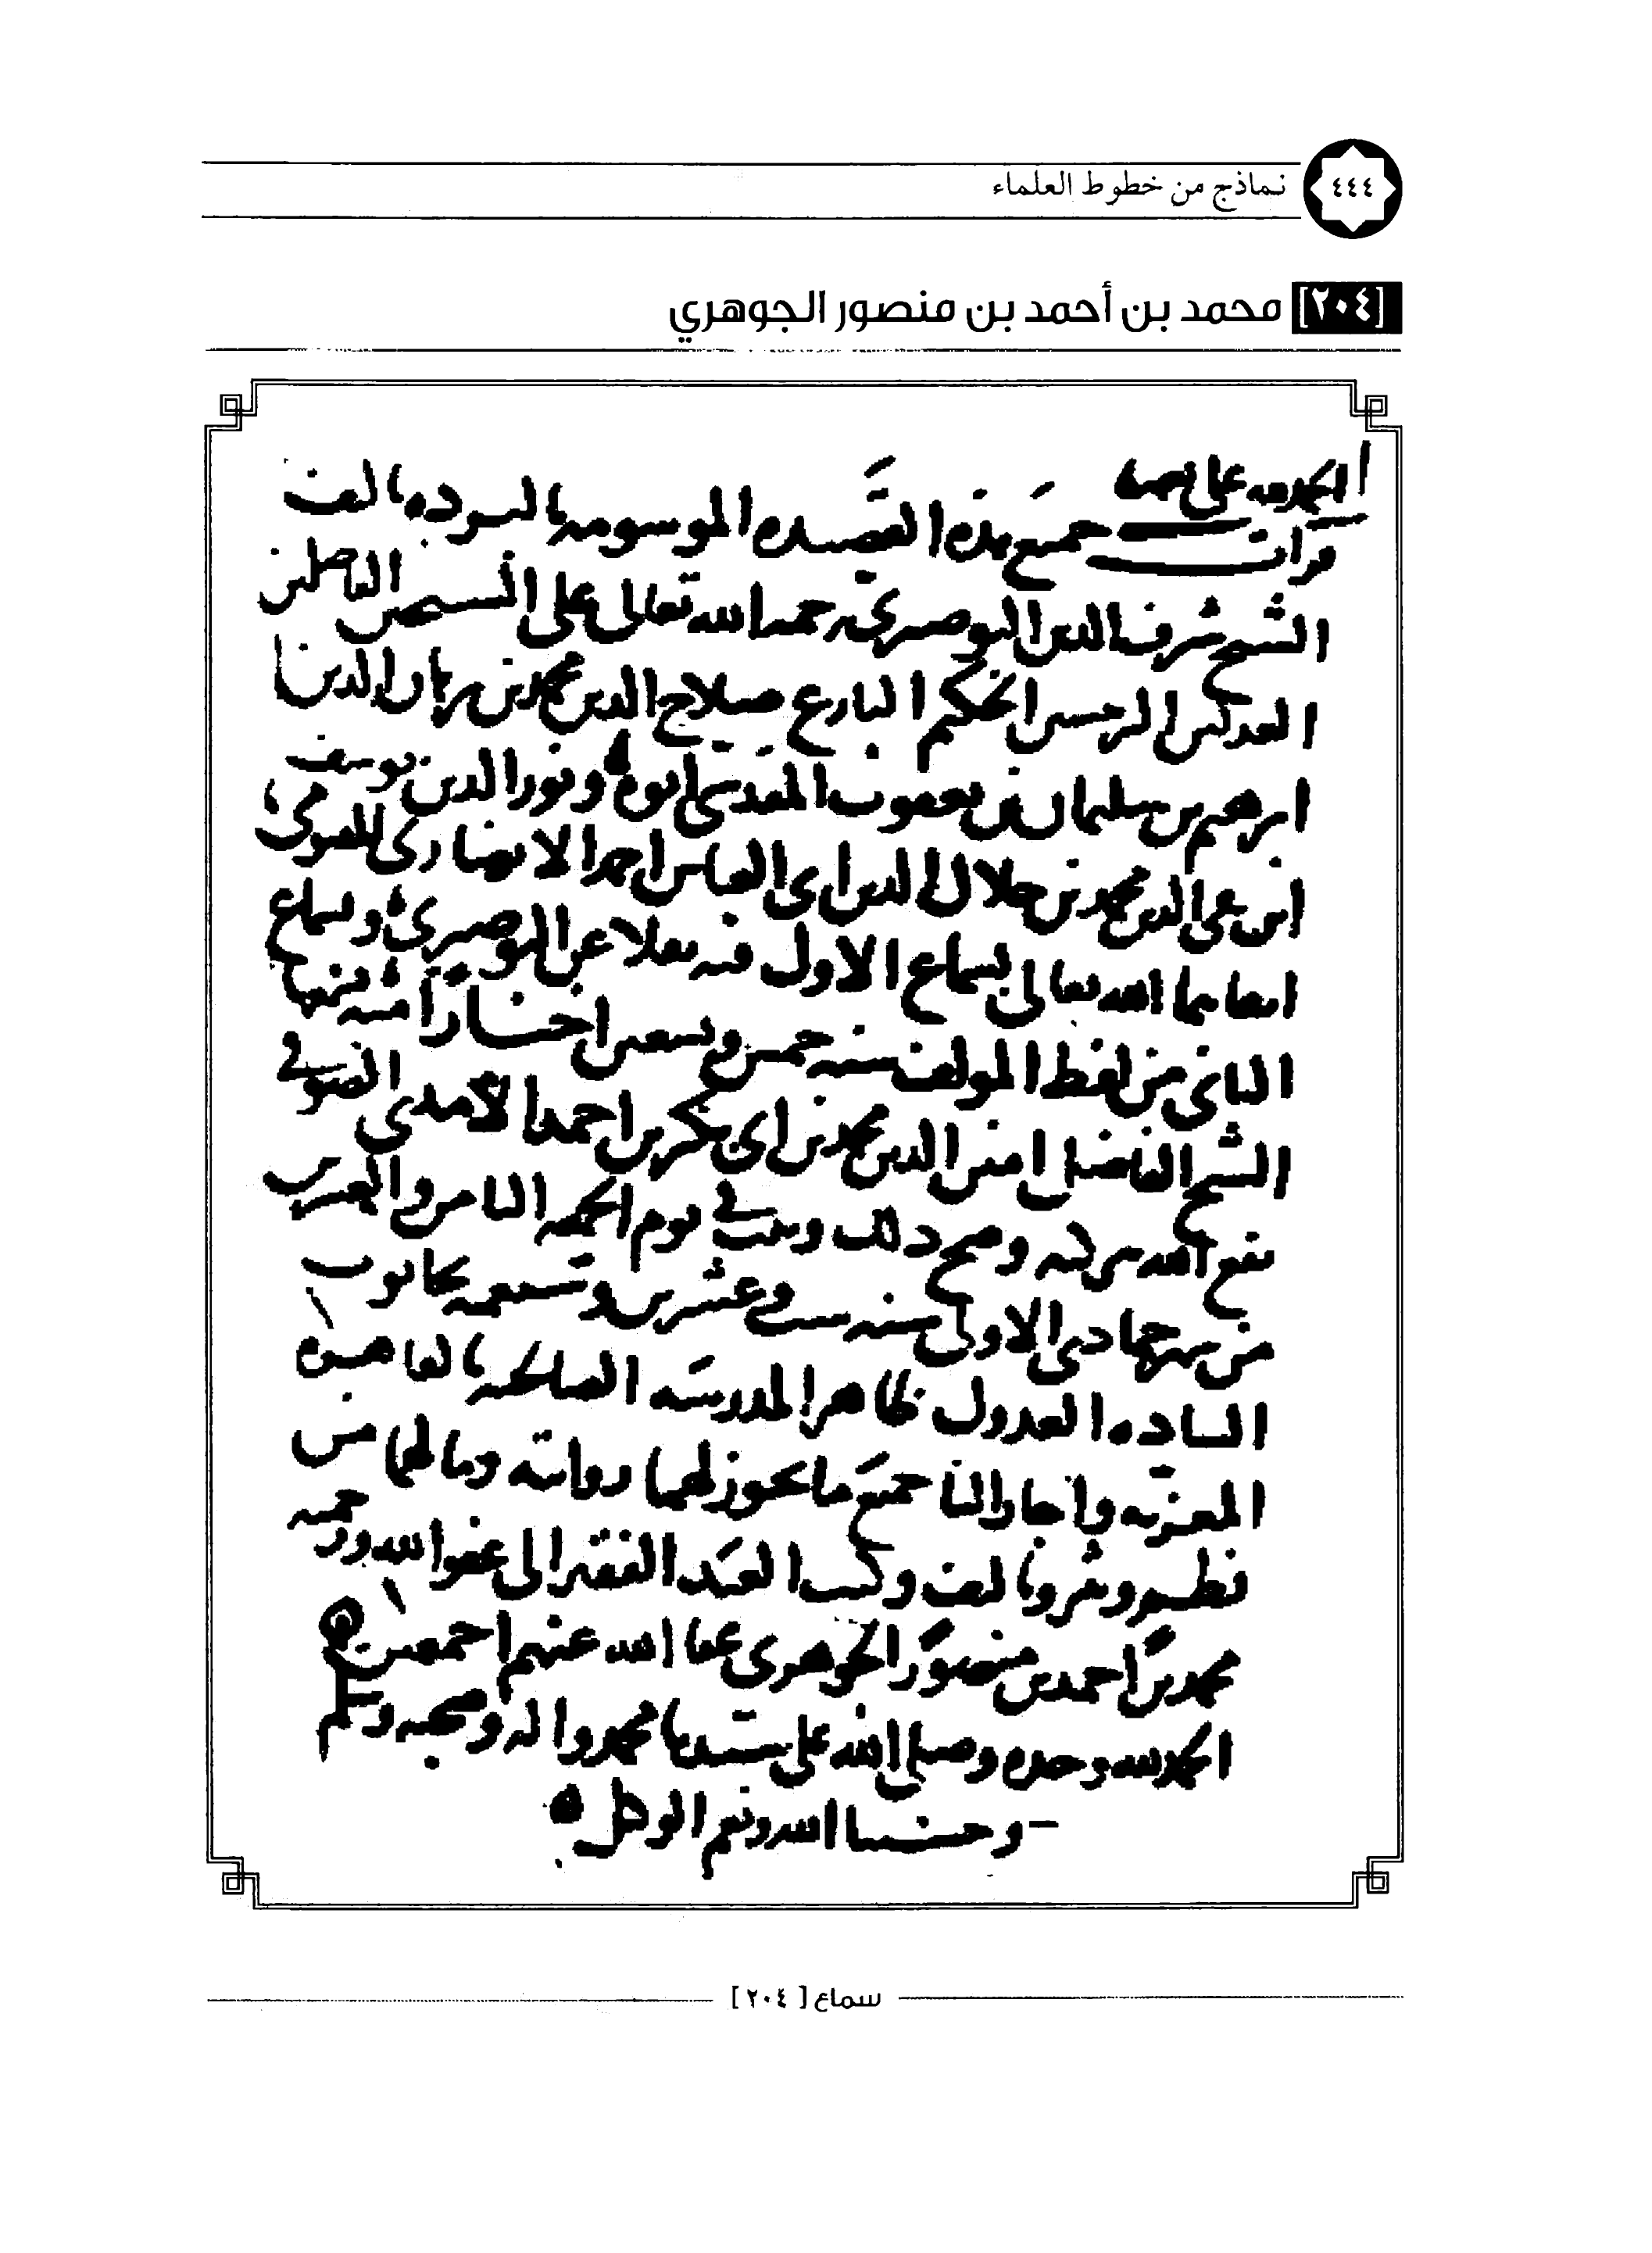 ٤٤٤
نماذج من خطوط العلماء
[٢٠٤] محمد بن أحمد بن منصور الجوهري
الحمد لله على نعمه
قرات جميع هذه القصيده الموسومه بالبرده تاليف
الشيخ شرف الدين البوصيري رحمه الله تعالى على الشيخين الفاضلين
العدلين الرئيس الحكيم البارع صلاح الدين محمد بن برهان الدين
ابرهيم بن سليمان بن يعقوب المقدسي ابوه ونور الدين يوسف
ابن محي الدين محمد بن جلال الدين ابي العباس احمد الانصاري الفيومي
ابقاهما الله تعالى بسماع الاول فيه نقلا عن البوصيري وبسماع
الثاني من لفظ المولف سنه خمس وتسعين
الشيخ الفاضل امين الدين محمد بن ابي بكر بن احمد الآمدي الصوفي
نفع الله ببركته وصح ذلك وثبت في يوم الجمعه الثامن والعشرين
من شهر جمادى الاولى سنه ست وعشرين وسبعمه بحانوت
الساده العدول ظاهر المدرسه الصالحيه بالقاهره
المعزيه واجاز لنا جميع ما يجوز لهما روايته وما لهما من
نظم ونثر وتاليف وكتب العبد الفقير الى عفو الله ورحمته
محمد بن احمد بن منصور الجوهري عفا الله عنهم اجمعين
الحمد لله وحده وصلى الله على سيدنا محمد واله وصحبه وسلم
وحسبنا الله ونعم الوكيل
سماع [ ٢٠٤ ]